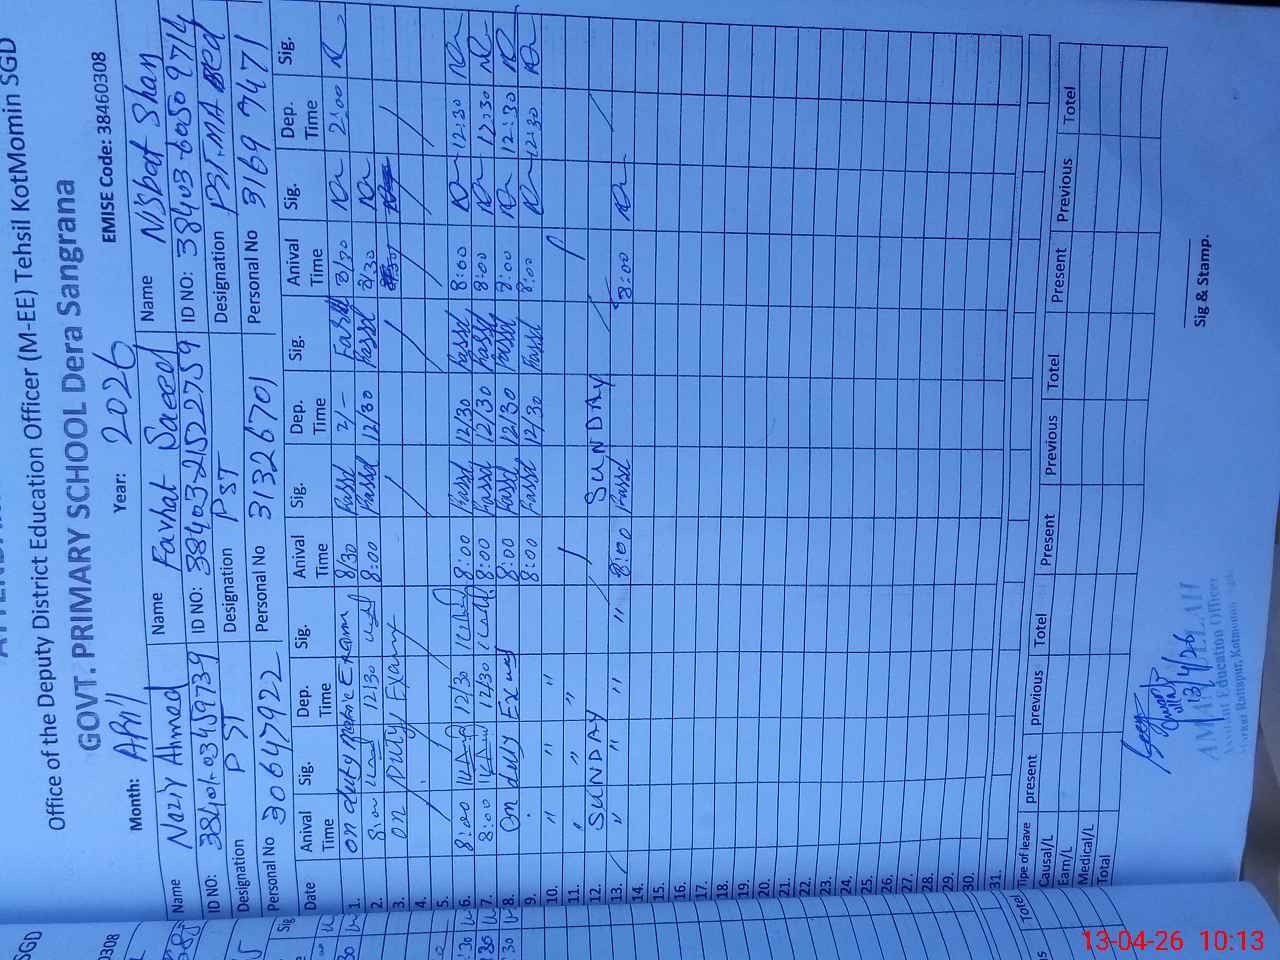 Office of the Deputy District Education Officer (M-EE) Tehsil KotMomin SGD
GOVT. PRIMARY SCHOOL Dera Sangrana
EMISE Code: 38460308
Month: April Year: 2026
Name Nazir Ahmed Name Farhat Saeed Name Nisbat Shah
ID NO: 38401-0345973-9 ID NO: 38403-2152275-9 ID NO: 38403-6050971-4
Designation PST Designation PST Designation PST. MA Bed
Personal No 30647922 Personal No 31326701 Personal No 31697471
Date Anival Time Sig. Dep. Time Sig. Anival Time Sig. Dep. Time Sig. Anival Time Sig. Dep. Time Sig.
1. on duty Exam 8/30 2/- 8/30 2:00
2. 8:00 12/30 8:00 12/30 8/30
3. on Duty Exam
4.
5.
6. 8:00 12/30 8:00 12/30 8:00 12:30
7. 8:00 12/30 8:00 12/30 8:00 12:30
8. On duty Exam 8:00 12/30 8:00 12:30
9. 8:00 12/30 8:00 12:30
10. " " "
11. " " "
12. SUNDAY SUNDAY
13. " " " " 8:00 8:00
14.
15.
16.
17.
18.
19.
20.
21.
22.
23.
24.
25.
26.
27.
28.
29.
30.
31.
Type of leave present previous Total Present Previous Total Present Previous Totel
Causal/L
Earn/L
Medical/L
Total
13/4/26
Assistant Education Officer
Sig & Stamp.
13-04-26 10:13